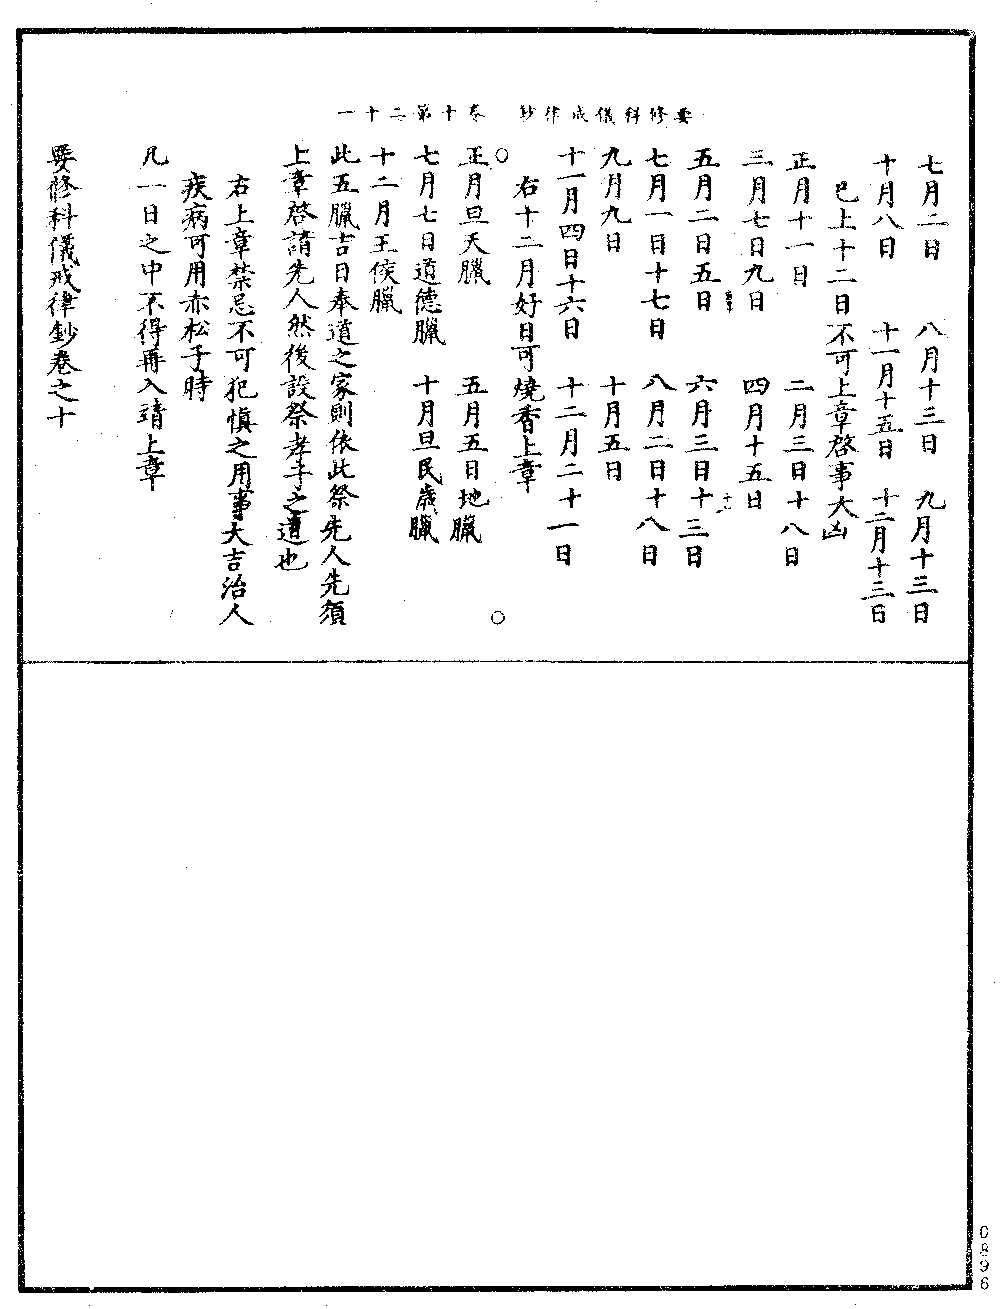 要修科儀戒律鈔　卷十第二十一
七月二日　八月十三日　九月十三日
十月八日　十一月十五日　十二月十三日
已上十二日不可上章啓事大凶
正月十一日　二月三日十八日
三月七日九日　四月十五日
五月二日五日　六月三日十三日
七月一日十七日　八月二日十八日
九月九日　十月五日
十一月四日十六日　十二月二十一日
右十二月好日可燒香上章
○正月旦天臘　五月五日地臘○
七月七日道德臘　十月旦民歲臘
十二月王侯臘
此五臘吉日奉道之家則依此祭先人先須
上章啓請先人然後設祭孝子之道也
右上章禁忌不可犯慎之用事大吉治人
疾病可用赤松子時
凡一日之中不得再入靖上章
要修科儀戒律鈔卷之十
0896